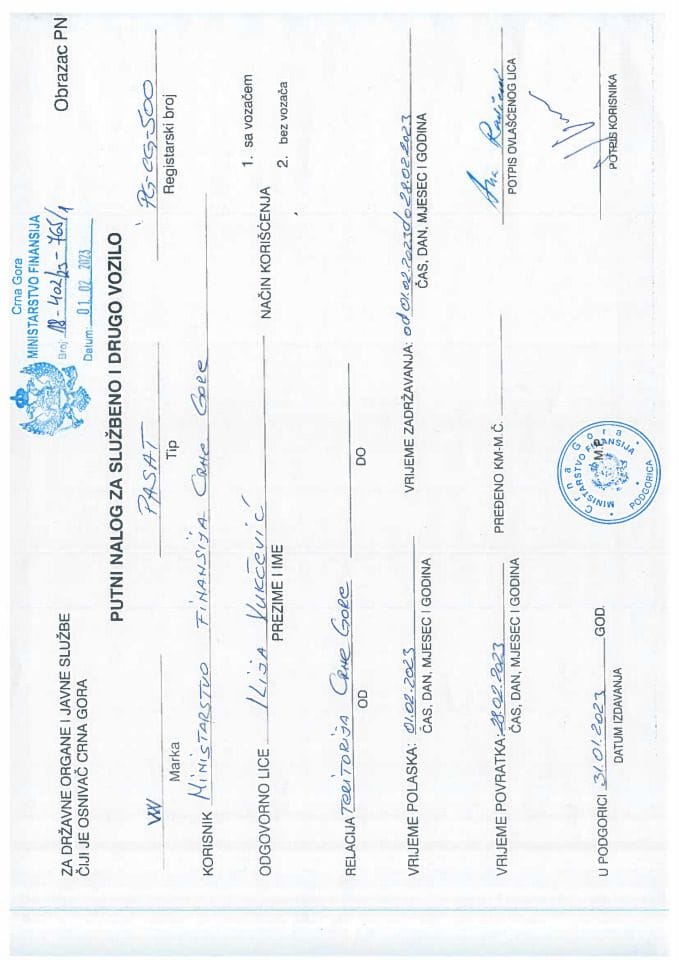 Crna Gora
MINISTARSTVO FINANSIJA
Broj 18-402/23-765/1
Datum: 01.02 2023
Obrazac PN
ZA DRŽAVNE ORGANE I JAVNE SLUŽBE
ČIJI JE OSNIVAČ CRNA GORA
PUTNI NALOG ZA SLUŽBENO I DRUGO VOZILO
VW PASAT PG-CG-500
Marka Tip Registarski broj
KORISNIK MINISTARSTVO FINANSIJA CRNE GORE
1. sa vozačem
ODGOVORNO LICE ILIJA VUKČEVIĆ NAČIN KORIŠĆENJA
PREZIME I IME
2. bez vozača
RELACIJA TERITORIJA CRNE GORE
OD DO
VRIJEME POLASKA: 01.02.2023 VRIJEME ZADRŽAVANJA: od 01.02.2023 do 28.02.2023
ČAS, DAN, MJESEC I GODINA ČAS, DAN, MJESEC I GODINA
VRIJEME POVRATKA: 28.02.2023 PREĐENO KM-M.Č.
ČAS, DAN, MJESEC I GODINA
POTPIS OVLAŠĆENOG LICA
U PODGORICI 31.01.2023 GOD.
DATUM IZDAVANJA
M.P.
Crna Gora
MINISTARSTVO FINANSIJA
PODGORICA
POTPIS KORISNIKA